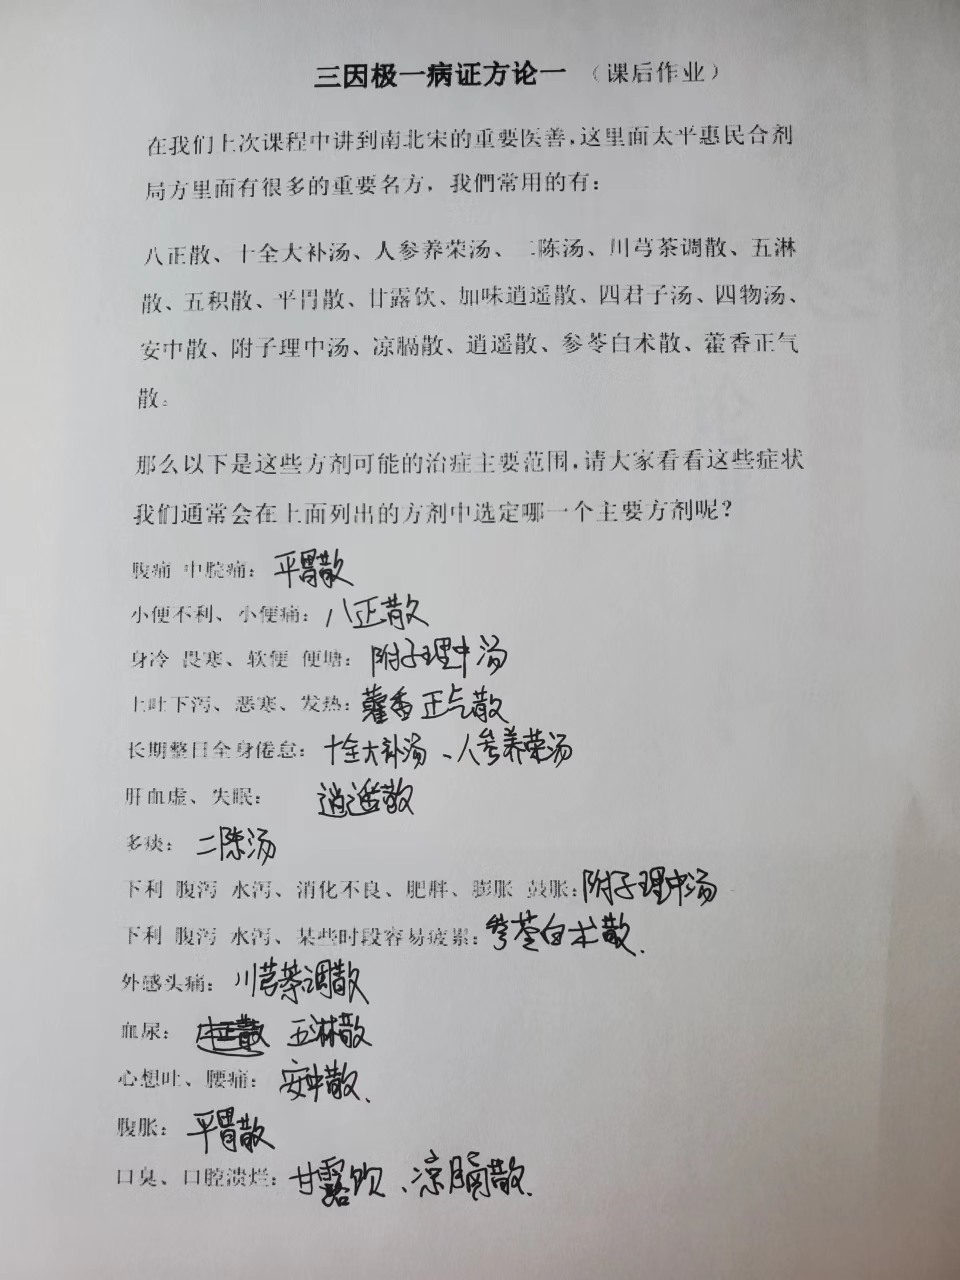 三因极一病证方论一 （课后作业）
在我们上次课程中讲到南北宋的重要医善,这里面太平惠民合剂
局方里面有很多的重要名方，我們常用的有：
八正散、十全大补汤、人参养荣汤、二陈汤、川芎茶调散、五淋
散、五积散、平胃散、甘露饮、加味逍遥散、四君子汤、四物汤、
安中散、附子理中汤、凉膈散、逍遥散、参苓白术散、藿香正气
散。
那么以下是这些方剂可能的治症主要范围,请大家看看这些症状
我们通常会在上面列出的方剂中选定哪一个主要方剂呢？
腹痛 中脘痛：平胃散
小便不利、小便痛：八正散
身冷 畏寒、软便 便塘：附子理中汤
上吐下泻、恶寒、发热：藿香正气散
长期整日全身倦怠：十全大补汤、人参养荣汤
肝血虚、失眠：逍遥散
多痰：二陈汤
下利 腹泻 水泻、消化不良、肥胖、膨胀 鼓胀：附子理中汤
下利 腹泻 水泻、某些时段容易疲累：参苓白术散.
外感头痛：川芎茶调散
血尿：五淋散
心想吐、腰痛：安中散、
腹胀：平胃散
口臭、口腔溃烂：甘露饮、凉膈散.